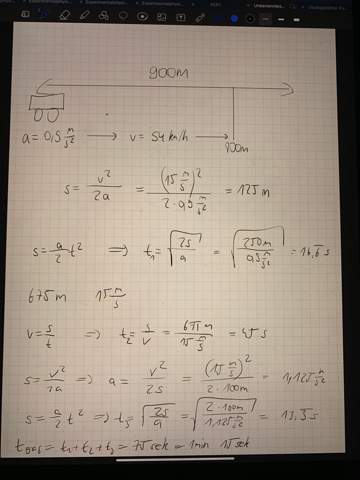 900m
a = 0,9 m/s² → v = 54 km/h →
100m
s = v²/2a = (15 m/s)²/2·0,9 m/s² = 125 m
s = a/2 t² ⇒ t₁ = √(2s/a) = √(250m/0,9 m/s²) = 16,6̅ s
675m 15 m/s
v = s/t ⇒ t₂ = s/v = 675m/15 m/s = 45 s
s = v²/2a ⇒ a = v²/2s = (15 m/s)²/2·100m = 1,125 m/s²
s = a/2 t² ⇒ t₃ = √(2s/a) = √(2·100m/1,125 m/s²) = 13,3̅ s
t ges = t₁ + t₂ + t₃ = 75 sek = 1 min 15 sek